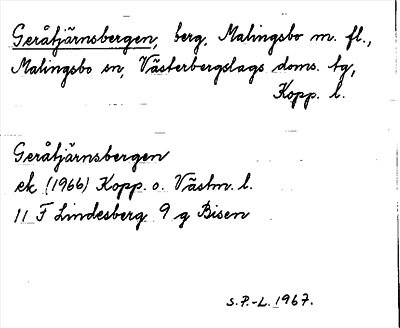 Geråtjärnsbergen, berg, Malingsbo m. fl.,
Malingsbo sn, Västerbergslags doms. tg,
Kopp. l.
Geråtjärnsbergen
ek (1966) Kopp. o. Västm. l.
11 F Lindesberg 9 g Bisen
S.P.-L. 1967.